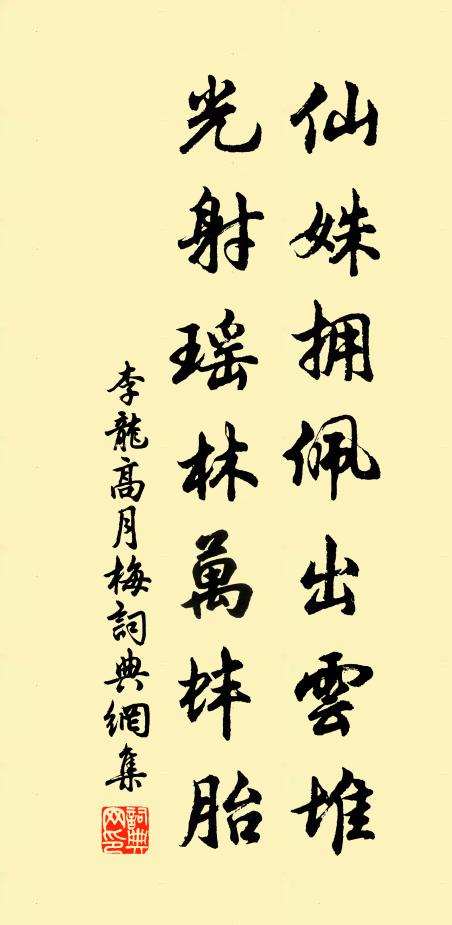 仙姝拥佩出雲堆
光射瑶林萬蚌胎
李龍高月梅詞典網集
詞典網印